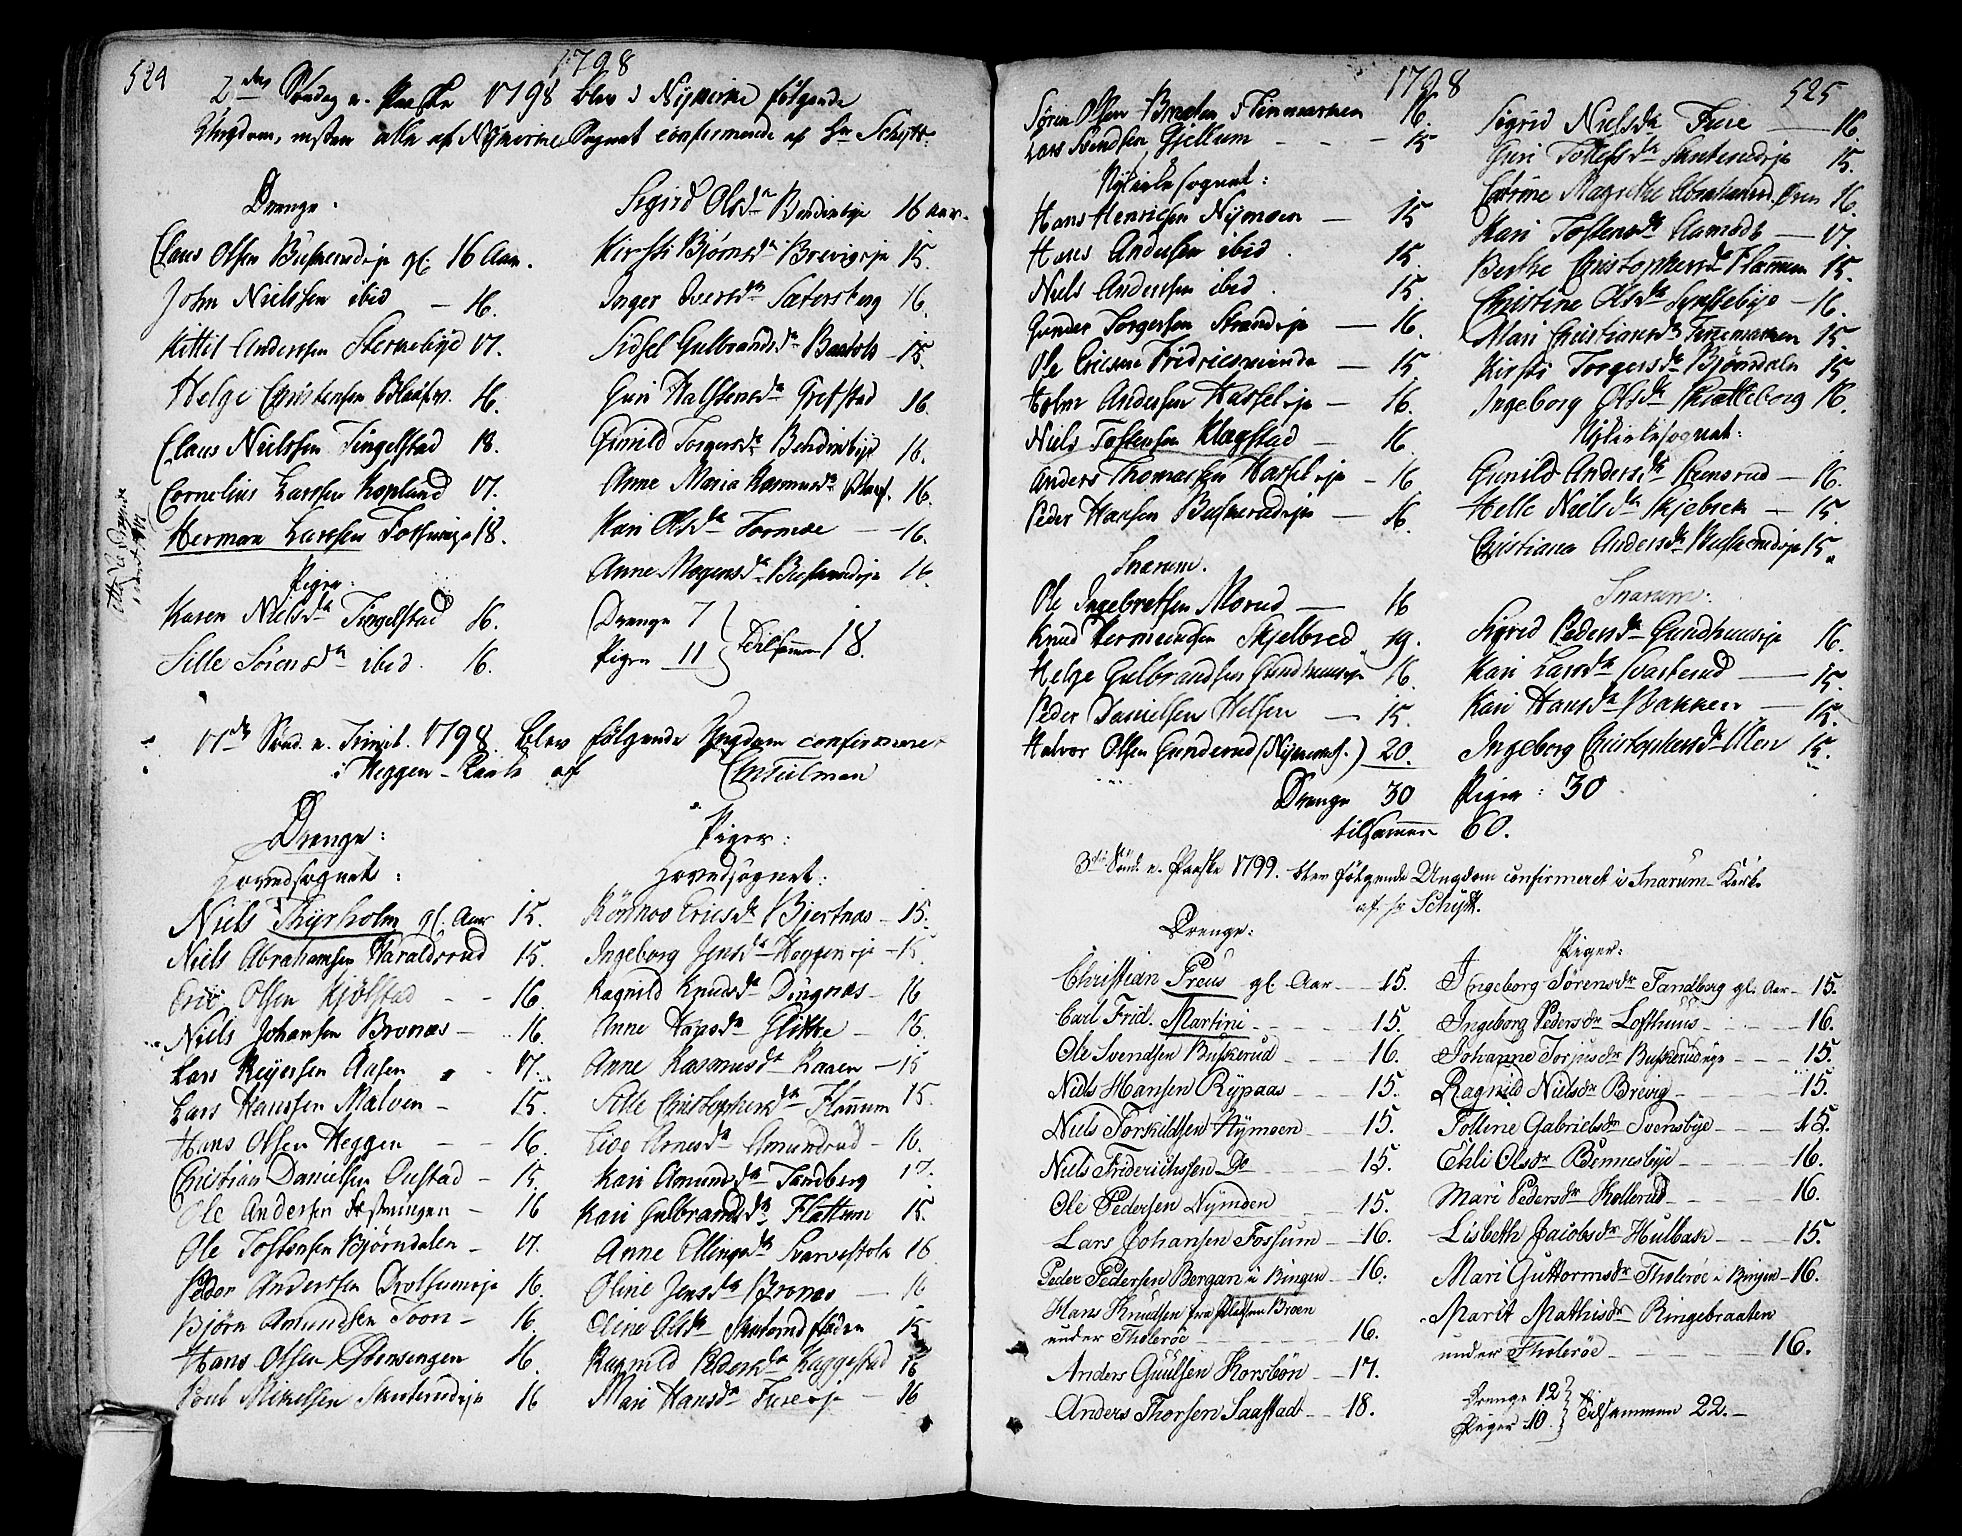 524
1798
2den Søndag e. Paaske 1798 blev i Nykirke følgende
Ungdom, nesten alle af Nykirke Sognet confirmerede af Hr Schytt:
Drenge.
Claus Olsen Buskerudeje gl. 16 Aar.
John Nielssen ibid — 16.
Kittil Anderssen Sternebye 17.
Helge Christensen 16.
Claus Nielssen Tingelstad 18.
Cornelius Larssen Kopland 17.
Herman Larssen 18.
Piger:
Karen Nielsdr Tingelstad 16.
Sille Sörensdr ibid. 16.
Sigrid Olsdr Bendixbye 16 Aar.
Kirsti Bjørnsdr Brevigeje 15.
Inger Iversdr Sætersberg 16.
Sidsel Gulbrandsdr 15.
Guri Halstensdr Grefstad 16.
Gunild Torgersdr Bendixbye 16.
Anne Maria Rasmusdr 16.
Kari Olsdr Formoe — 16.
Anne Mogensdr Buskerudeje 16.
Drenge 7
Piger 11 } Tilsammen 18.
17de Sønd. e. Trinit. 1798. blev følgende Ungdom confirmeret
i Heggen-Kirke af Tuelman
Drenge:
Hovedsognet:
Niels Thyrholm gl. Aar 15.
Niels Abrahamsen Haraldsrud 15.
Eric Olsen Kjölstad - - 16.
Niels Johansen Bronæs — 16.
Lars Reyersen Aasen - 17.
Lars Hanssen Malven - 15.
Hans Olsen Heggen - - 16.
Christian Danielsen Oustad - 15.
Ole Andersen Festningen - 16
Ole Tostensen Bjørndalen - 17.
Peder Anderssen 16.
Bjørn Amundsen Foon - 16
Hans Olsen 16.
Poul Mikelsen Skuterudeje 16
Piger:
Hovedsognet:
Rönnov Ericsdr Bjertnæs - 15.
Ingeborg Jensdr Heggeneje - 15
Ragnild Knudsdr Dingnæs - 16
Anne Hansdr Glikke - 16.
Anne Rasmusdr Raaen - 15
Sille Christophersdr Flannum 15.
Live Arnesdr Amundrud - 16.
Kari Amundsdr Tandberg 17.
Kari Gulbrandsdr Flattum 15.
Anne Ellingsdr Svarvestole 16
Oline Jensdr Bronæs — 16
Eline Olsdr 15
Ragnild Pedersdr Kaggestad 16
Mari Hansdr Fureeje - 16
1798
525
Søren Olsen Braaten Finnemarken 16.
Lars Svendsen Gjellum - - - 15
Nykirkesognet:
Hans Henricsen Nymoen — 15
Hans Andersen ibid. 15.
Niels Anderssen ibid. 15.
Gunder Torgersen Strandeje — 16.
Ole Ericsen Fridricsminde — 15.
Holm Andersen Hasseleje — 16.
Niels Tostensen Klagstad — 16.
Anders Thomassen Hasseleje - 16
Peder Hansen Buskerudeje — 16.
Snarum.
Ole Ingebretsen Morud — 16
Knud Hermandsen Skjelbred. 19.
Helge Gulbrandsen Gundhuuseje 16.
Peder Danielsen Helsen — 15.
Halvor Olsen Gunderud (Nykirkes.) 20.
Drenge 30 Piger: 30
tilsammen 60.
Sigrid Nielsdr Fure — 16.
Guri Tollefsdr Skuterudeje 15.
Catrine Margrethe Abrahamsd. Øren 16.
Kari Tostensdr Aamodt — 17.
Berthe Christophersdr Flannum 15.
Christine Olsdr — 16.
Mari Christiansdr Finnemarken 15.
Kirsti Torgersdr Bjørndalen 15
Ingeborg Olsdr Skratteborg 16.
Nykirkesognet:
Gunild Andersdr Stensrud — 16.
Helle Nielsdr Skjebrek — 15.
Christiana Andersdr Buskerudeje 15.
Snarum:
Sigrid Pedersdr Gundhuuseje 16.
Kari Larsdr Svarterud — 15.
Kari Hansdr Bakken — 15.
Ingeborg Christophersdr Ulen 15.
3die Sønd. e. Paaske 1799. blev følgende Ungdom confirmeret i Snarum-Kirke
af Hr Schytt.
Drenge:
Christian Preus gl. Aar - - 15.
Carl Frid. Martini - - - - 15.
Ole Svendsen Buskerud - - - 16.
Niels Hansen Rypaas - - - 15.
Niels Torkildsen Nymoen - - - 15.
Niels Friderichssen Do - - - - 15.
Ole Pedersen Nymoen - - - 15.
Lars Johansen Fossum - - 16.
Peder Pedersen Bergan i Bingen - - 16.
Hans Knudsen fra Pladsen Broen
under Tholeröe - - - - 16.
Anders Guulsen Korsbön - - 17.
Anders Thorsen Saastad - - 18.
Piger:
Ingeborg Sørensdr Tandberg gl. Aar - 15.
Ingeborg Pedersdr Lofthuus - - - - 16.
Johanne Torjusdr Buskerudeje - - - 15.
Ragnild Nielsdr Brevig - - - - 15.
Tolline Gabrielsdr Svensbye - - - 15.
Ehli Olsdr Bennesbye - - - - 16.
Mari Pedersdr Kollerud - - - - 16.
Lisbeth Jacobsdr Hulbak - - - 15.
Mari Guttormsdr Tholeröe i Bingen - 16.
Marit Mathisdr Ringebraaten
under Tholeröe - - - - 16.
Drenge 12
Piger 10. } Tilsammen 22.-